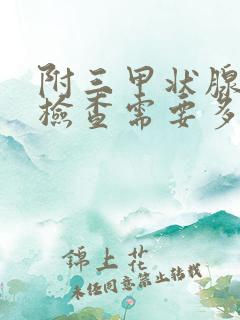 附三甲状腺
檢查需要多
錦上花
未任同意禁止转载